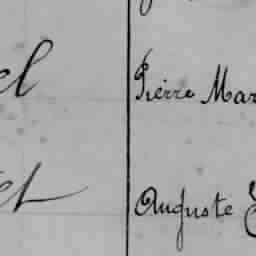 el Pierre Mar
et Auguste